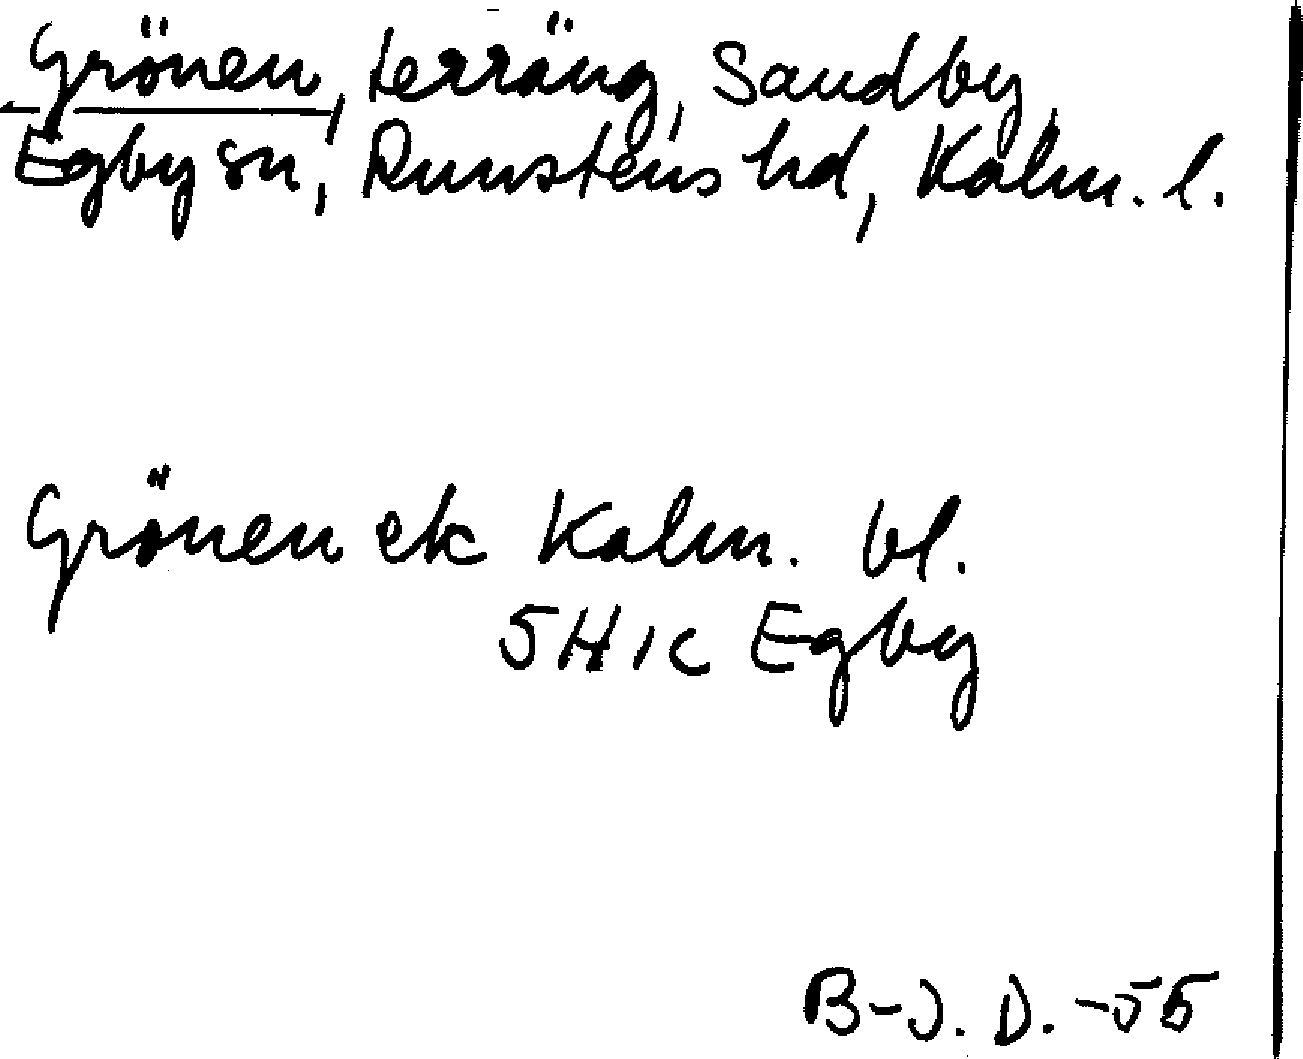 Grönen, terräng, Sandby,
Egby sn, Runstens hd, Kalm. l.
Grönen ek Kalm. bl.
5H1c Egby
B-J. D. -55